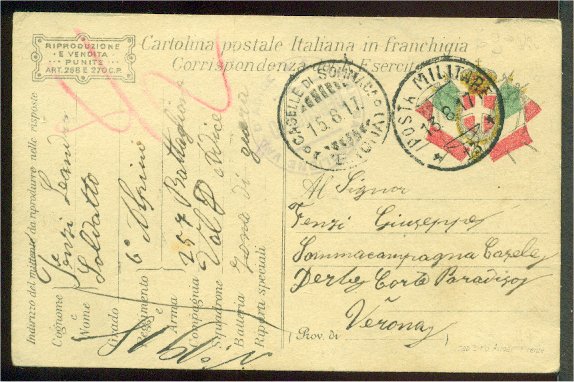 RIPRODUZIONE
E VENDITA
PUNITE
ART. 268 E 270 C.P.
Cartolina postale Italiana in franchigia
Corrispondenza del R. Esercito
CASELLE D. SOMMACA
15.8.17
VERONA
POSTA MILITARE
13.8.17
Indirizzo del mittente da riprodurre nelle risposte
Cognome e Nome
Grado
Reggimento
Arma
Compagnia
Squadrone
Batteria
Riparti speciali
Fenzi Leandro
Soldatto
6° Alpino
157 Battaglione
Val D'Adice
Zona di guerra
Al Signor
Fenzi Giuseppe
Sommacampagna Casele
Corte Paradiso
Prov. di Verona